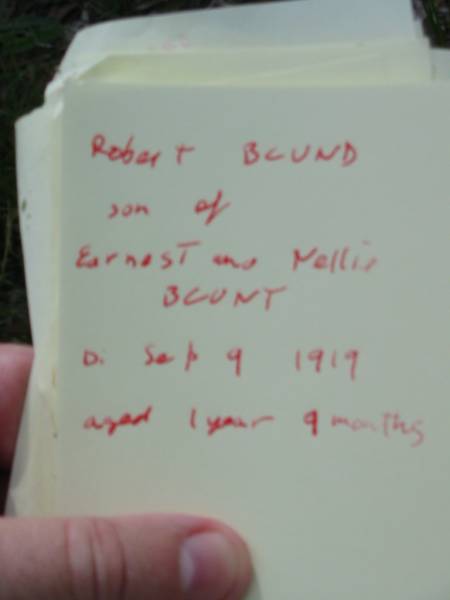 Robert BLUND
son of
Earnest and Nellie
BLUNT
D. Sep 9 1919
aged 1 year 9 months